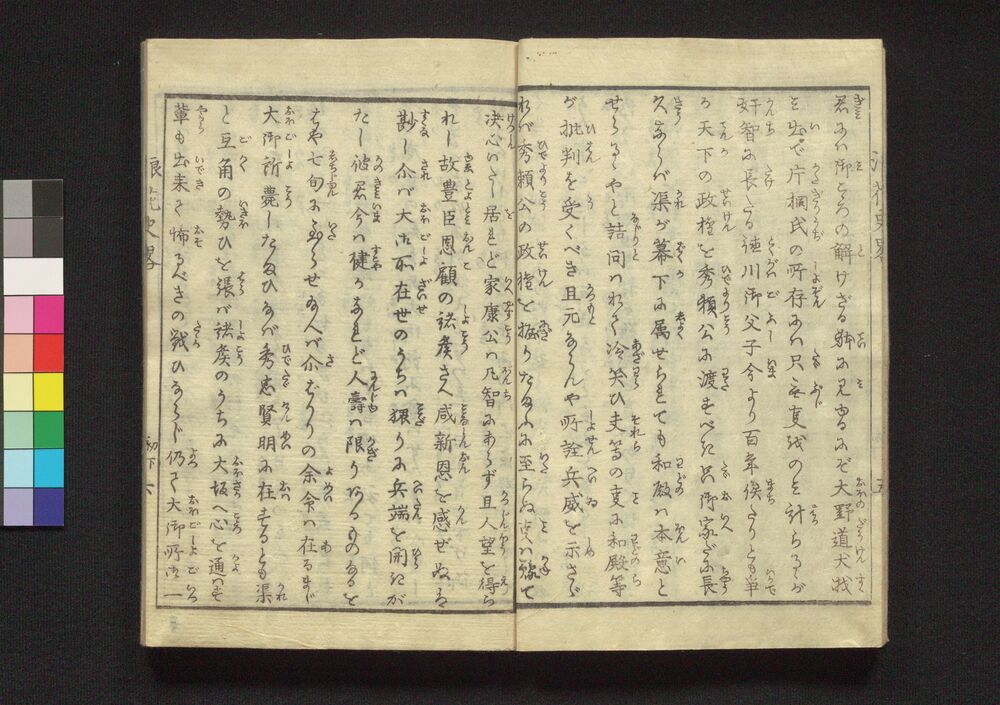 君には御こゝろの解けざる躰に見ゆるにぞ大野道犬我
を出で片桐氏の所存には只無事我のを計らるゝが
奸智に長たる徳川御父子今より百年俟たりとも争
る天下の政権を秀頼公に渡すべき只御家だに長
久ならバ渠が幕下に属せられても和殿ハ本意と
せらるゝやと詰問ハれて冷笑ひ夫等の事は和殿等
が批判を受くべき且元ならんや所詮兵威を示さゞ
れバ秀頼公の政権を握りたまふに至らぬ点ハ豫て
決心いたし居れど家康公ハ凡智にあらず且人望を得ら
れし故豊臣恩顧の諸矦さへ咸新恩を感ぜぬハ
尠し介バ大御所在世のうちハ猥りに兵端を開きが
たし彼君今ハ健かなれど人壽ハ限りあるものなると
はや七旬に到らせ給へバ介ばかりの余命ハ在るまじ
大御所薨したまひなバ秀忠賢明に在すとも渠
と互角の勢ひを張バ諸矦のうちに大坂へ心を通ハす
輩も出来て怖るべきの戦ひならじ仍て大御所御一
浪花史畧
初下 六